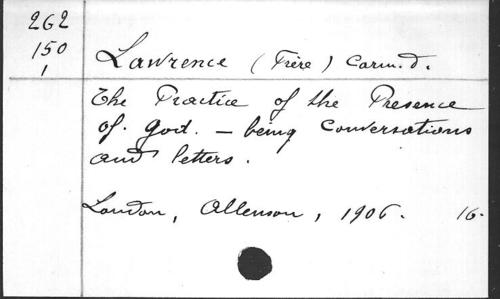 262
150
1
Lawrence (Frère) Carm. d.
The Practice of the Presence
of God. — being Conversations
and letters.
London, Allenson, 1906. 16.